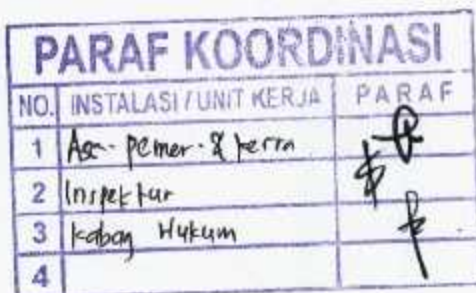 PARAF KOORDINASI
NO. INSTALASI / UNIT KERJA PARAF
1 Ass. pemer. & kerra
2 Inspektur
3 Kabag Hukum
4